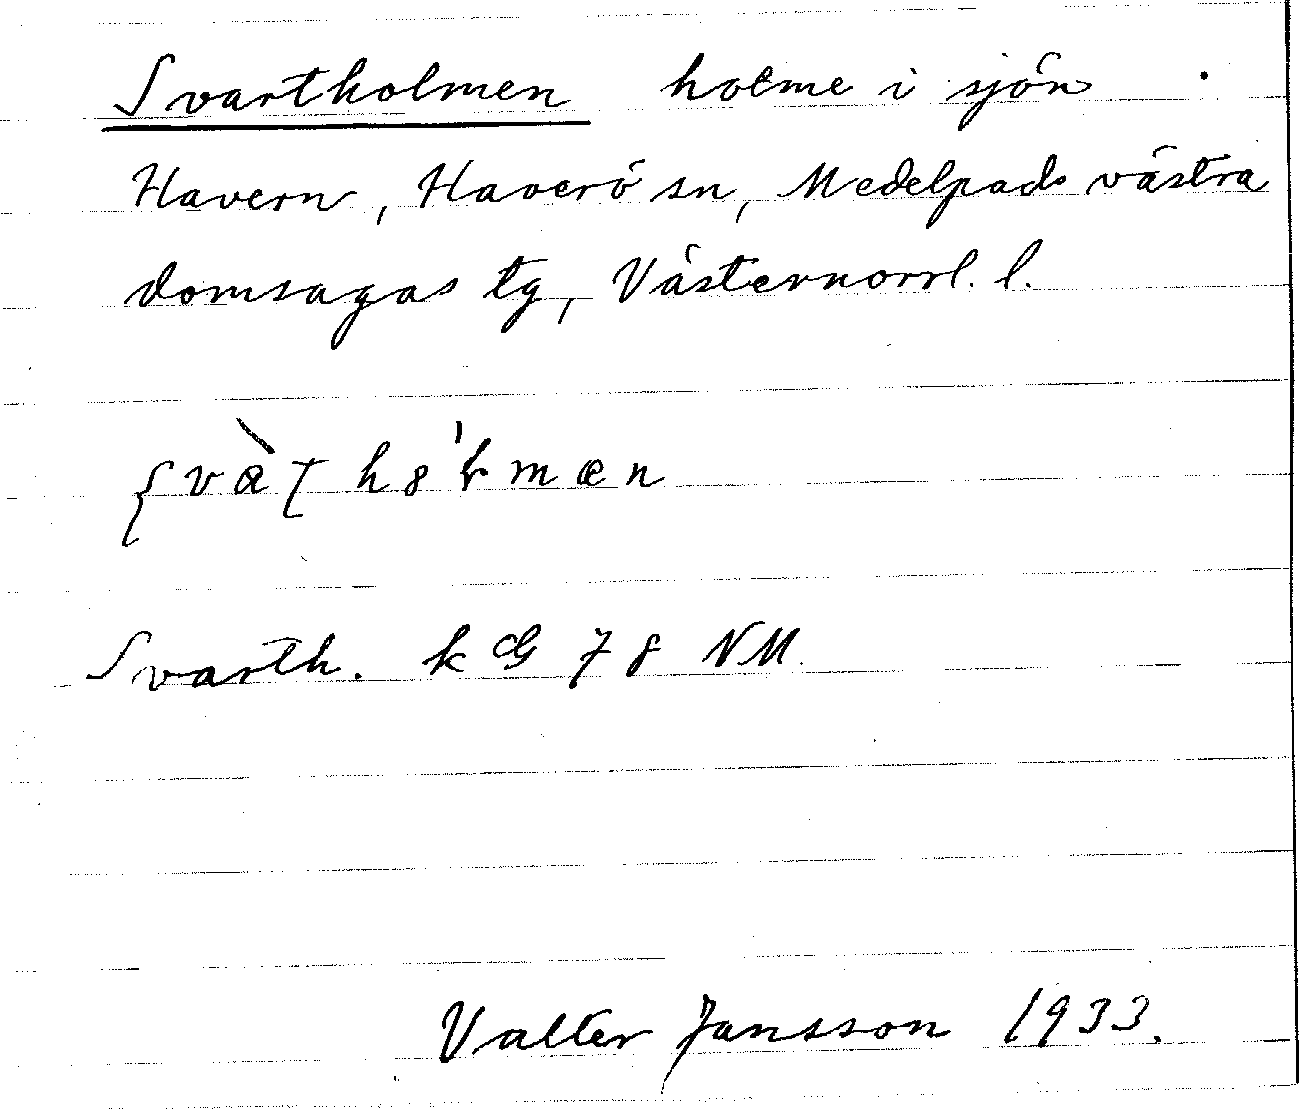 Svartholmen holme i sjön
Havern, Haverö sn, Medelpads västra
domsagas tg, Västernorrl. l.
Svarth. k G 78 NM
Valter Jansson 1933.